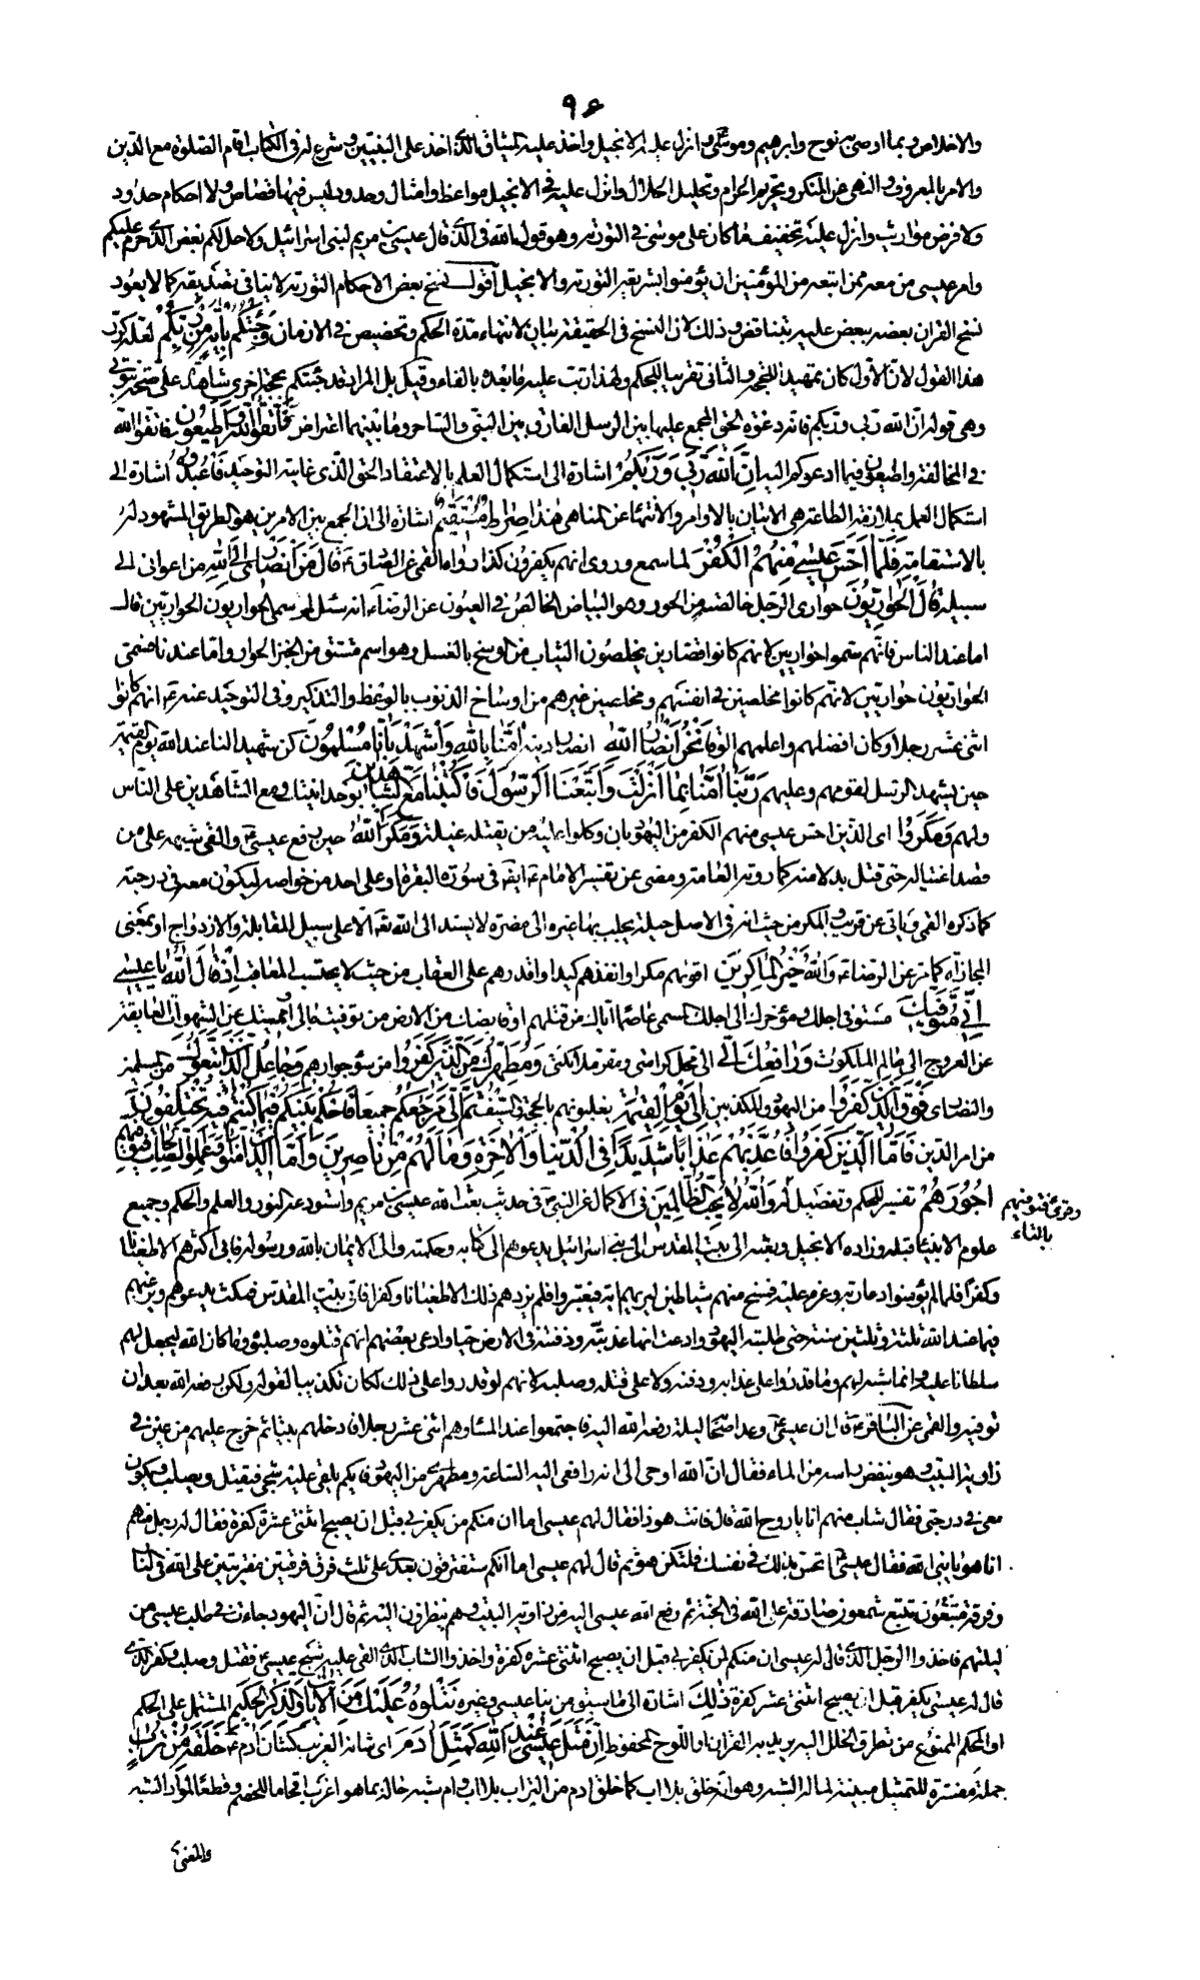 ٩٤
والاخلاص وبما اوصى به نوح وابرهيم وموسى وانزل عليه الانجيل واخذ عليه الميثاق الذى اخذ على النبيين وشرع له فى الكتاب اقام الصلوة مع الدين
والامر بالمعروف والنهى عن المنكر وتحريم الحرام وتحليل الحلال وانزل عليه فى الانجيل مواعظ وامثال وحدود ليس فيها قصاص ولا احكام حدود
ولا فرض مواريث وانزل عليه تخفيف ما كان على موسى فى التورية وهو قول الله فى الذى قال عيسى بن مريم لبنى اسرائيل ولاحل لكم بعض الذى حرم عليكم
وامر عيسى من معه ممن اتبعه من المؤمنين ان يؤمنوا بشريعة التورية والانجيل اقول نسخ بعض الاحكام التورية لا ينافى تصديقه كما لا يعود
نسخ القران بعضه ببعض عليه بتناقض وذلك لان النسخ فى الحقيقة بيان لانتهاء مدة الحكم وتخصيص فى الازمان وَجِئْتُكُمْ بِآيَةٍ مِنْ رَبِّكُمْ لعله كرر
هذا القول لان الاول كان تمهيدا للحجة والثانى تقريبا للحكم ولهذا رتب عليه ما بعده بالفاء وقيل بل المراد قد جئتكم بحجة اخرى شاهدة على صحة نبوتى
وهى قوله ان الله ربى وربكم فانه دعوة الحق المجمع عليها بين الرسل الفارق بين النبى والساحر وما بينهما اعتراض فَاتَّقُوا اللَّهَ وَأَطِيعُونِ فاتقوا الله
فى المخالفة واطيعون فيما ادعوكم اليه إِنَّ اللَّهَ رَبِّي وَرَبُّكُمْ اشارة الى استكمال العلم بالاعتقاد الحق الذى غايته التوحيد فَاعْبُدُوهُ اشارة الى
استكمال العمل بملازمة الطاعة هى الاتيان بالاوامر والانتهاء عن المناهى هَذَا صِرَاطٌ مُسْتَقِيمٌ اشارة الى ان الجمع بين الامرين هو الطريق المشهود له
بالاستقامة فَلَمَّا أَحَسَّ عِيسَى مِنْهُمُ الْكُفْرَ لما سمع وروى انهم يكفرون كذا رواه القمى عن الصادق ع قَالَ مَنْ أَنْصَارِي إِلَى اللَّهِ من اعوانى الى
سبيله قَالَ الْحَوَارِيُّونَ حوارى الرجل خالصته من الحور وهو البياض الخالص فى العيون عن الرضا ع انه سئل لم سمى الحواريون الحواريين قال
اما عند الناس فانهم سموا حواريين لانهم كانوا قصارين يخلصون الثياب من الوسخ بالغسل وهو اسم مشتق من الخبز الحوار واما عندنا فسمى
الحواريون حواريين لانهم كانوا مخلصين فى انفسهم ومخلصين غيرهم من اوساخ الذنوب بالوعظ والتذكير وفى التوحيد عنه ع انهم كانوا
اثنى عشر رجلا وكان افضلهم واعلمهم الوقا نَحْنُ أَنْصَارُ اللَّهِ انصار دينه آمَنَّا بِاللَّهِ وَاشْهَدْ بِأَنَّا مُسْلِمُونَ كن شهيد النا عند الله يوم القيمة
حين يشهد الرسل لقومهم وعليهم رَبَّنَا آمَنَّا بِمَا أَنْزَلْتَ وَاتَّبَعْنَا الرَّسُولَ فَاكْتُبْنَا مَعَ الشَّاهِدِينَ بوحدانيتك ومع الشاهدين على الناس
ولهم وَمَكَرُوا اى الذين احس عيسى منهم الكفر من اليهود بان وكلوا عليه من يقتله غيلة وَمَكَرَ اللَّهُ حين رفع عيسى ع والقى شبهه على من
قصد اغتياله حتى قتل بدلا منه كما روته العامة ومضى عن تفسير الامام ع ايضا فى سورة البقرة او على احد من خواصه ليكون معه فى درجته
كما ذكره القمى وياتى عن قريب والمكر من حيث انه فى الاصل حيلة يجلب بها غيره الى مضرة لا يسند الى الله تعالى الا على سبيل المقابلة والازدواج او بمعنى
المجازاة كما مر عن الرضا ع وَاللَّهُ خَيْرُ الْمَاكِرِينَ اقوىهم مكرا وانفذهم كيدا واقدرهم على العقاب من حيث لا يحتسب المعاقب إِذْ قَالَ اللَّهُ يَا عِيسَى
إِنِّي مُتَوَفِّيكَ مستوفى اجلك ومؤخرك الى اجلك المسمى عاصما اياك من قتلهم او قابضك من الارض من توفيت مالى او مميتك عن الشهوات العايقة
عن العروج الى عالم الملكوت وَرَافِعُكَ إِلَيَّ الى محل كرامتى ومقر ملائكتى وَمُطَهِّرُكَ مِنَ الَّذِينَ كَفَرُوا من سوء جوارهم وَجَاعِلُ الَّذِينَ اتَّبَعُوكَ من المسلمين
والنصارى فَوْقَ الَّذِينَ كَفَرُوا من اليهود والمكذبين إِلَى يَوْمِ الْقِيَامَةِ يغلبونهم بالحجة والسيف ثُمَّ إِلَيَّ مَرْجِعُكُمْ جميعا فَأَحْكُمُ بَيْنَكُمْ فِيمَا كُنْتُمْ فِيهِ تَخْتَلِفُونَ
من امر الدين فَأَمَّا الَّذِينَ كَفَرُوا فَأُعَذِّبُهُمْ عَذَابًا شَدِيدًا فِي الدُّنْيَا وَالْآخِرَةِ وَمَا لَهُمْ مِنْ نَاصِرِينَ وَأَمَّا الَّذِينَ آمَنُوا وَعَمِلُوا الصَّالِحَاتِ فَيُوَفِّيهِمْ
أُجُورَهُمْ تفسير للحكم وتفصيل له وَاللَّهُ لَا يُحِبُّ الظَّالِمِينَ فى الاكمال عن النبى ص فى حديث بعث الله عيسى بن مريم واستودعه النور والعلم والحكم وجميع
وقرئ فنوفيهم
بالنون
علوم الانبياء قبله وزاده الانجيل وبعثه الى بيت المقدس الى بنى اسرائيل يدعوهم الى كتابه وحكمته والى الايمان بالله ورسوله فابى اكثرهم الا طغيانا
وكفرا فلما لم يؤمنوا دعا ربه وعزم عليه فمسخ منهم شياطين ليريهم اية فيعتبروا فلم يزدهم ذلك الا طغيانا وكفرا فاتى بيت المقدس فمكث يدعوهم ويرغبهم
فيما عند الله ثلثة وثلثين سنة حتى طلبته اليهود وادعت انها عذبته ودفنته فى الارض حيا وادعى بعضهم انهم قتلوه وصلبوه وما كان الله ليجعل لهم
سلطانا عليه وانما شبه لهم وما قدروا على عذابه ودفنه ولا على قتله وصلبه لانهم لو قدروا على ذلك لكان تكذيبا لقوله ولكن رفعه الله بعد ان
توفيه والقمى عن الباقر ع قال ان عيسى ع وعد اصحابه ليلة رفعه الله اليه فاجتمعوا عند المساء وهم اثنى عشر رجلا فادخلهم بيتا ثم خرج عليهم من عين فى
زاوية البيت وهو ينفض راسه من الماء فقال ان الله اوحى الى انه رافعى اليه الساعة ومطهرى من اليهود فايكم يلقى عليه شبحى فيقتل ويصلب ويكون
معى فى درجتى فقال شاب منهم انا يا روح الله قال فانت هوذا فقال لهم عيسى اما ان منكم من يكفر بى قبل ان يصبح اثنتى عشرة كفرة فقال له رجل منهم
انا هو يا نبى الله فقال عيسى ا تحس بذلك فى نفسك فلتكن هو ثم قال لهم عيسى اما انكم ستفترقون بعدى على ثلث فرق فرقتين مفتريتين على الله فى النار
وفرقة متبعون تتبع شمعون صادقة على الله فى الجنة ثم رفع الله عيسى اليه من زاوية البيت وهم ينظرون اليه ثم قال ان اليهود جاءت فى طلب عيسى من
ليلتهم فاخذوا الرجل الذى قال له عيسى ان منكم لمن يكفر بى قبل ان يصبح اثنتى عشرة كفرة واخذوا الشاب الذى القى عليه شبح عيسى ع فقتل وصلب وكفر الذى
قال له عيسى يكفر قبل ان يصبح اثنتى عشر كفرة ذَلِكَ اشارة الى ما سبق من نبا عيسى وغيره نَتْلُوهُ عَلَيْكَ مِنَ الْآيَاتِ وَالذِّكْرِ الْحَكِيمِ المشتمل على الحكم
او المحكم الممنوع من تطرق الخلل اليه يريد به القران او اللوح المحفوظ إِنَّ مَثَلَ عِيسَى عِنْدَ اللَّهِ كَمَثَلِ آدَمَ اى شانه الغريب كشان ادم ع خَلَقَهُ مِنْ تُرَابٍ
جملة مفسرة للتمثيل مبينة لما له الشبه وهو انه خلق بلا اب كما خلق ادم من التراب بلا اب وام شبه حاله بما هو اغرب اقحاما للخصم وقطعا لمواد الشبه
والمعنى